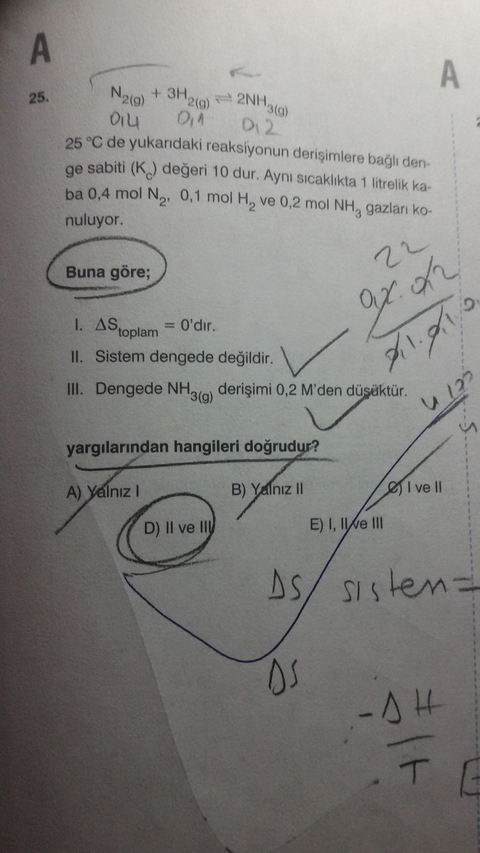 A
A
25. N2(g) + 3H2(g) ⇌ 2NH3(g)
0,4 0,1 0,2
25 °C de yukarıdaki reaksiyonun derişimlere bağlı den-
ge sabiti (Kc) değeri 10 dur. Aynı sıcaklıkta 1 litrelik ka-
ba 0,4 mol N2, 0,1 mol H2 ve 0,2 mol NH3 gazları ko-
nuluyor.
22
0,2 . 0,2
Buna göre;
I. ΔStoplam = 0'dır.
II. Sistem dengede değildir.
III. Dengede NH3(g) derişimi 0,2 M'den düşüktür.
yargılarından hangileri doğrudur?
A) Yalnız I B) Yalnız II C) I ve II
D) II ve III E) I, II ve III
ΔS sisten =
ΔS
-ΔH
T